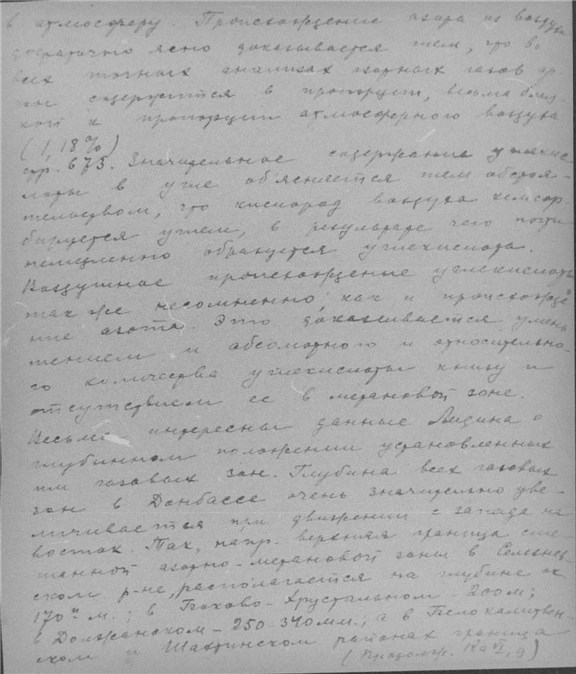 в атмосферу. Происхождение азота из воздуха
достаточно ясно доказывается тем, что во
всех точных анализах азотных газов ар-
гон содержится в пропорции, весьма близ-
кой к пропорции атмосферного воздуха
(1,18%)
стр. 673. Значительное содержание углекис-
лоты в угле объясняется тем обстоя-
тельством, что кислород воздуха хемсор-
бируется углем, в результате чего почти
немедленно образуется углекислота.
Воздушное происхождение углекислоты
так же несомненно, как и происхожде-
ние азота. Это доказывается умень-
шением и абсолютного и относительно-
го количества углекислоты книзу и
отсутствием ее в метановой зоне.
Весьма интересны данные Лидина о
глубинном положении установленных
им газовых зон. Глубина всех газовых
зон в Донбассе очень значительно уве-
личивается при движении с запада на
восток. Так, напр. верхняя граница сме-
шанной азотно-метановой зоны в Селезнев
ском р-не располагается на глубине ок
170 м.; в Боково-Хрустальном 200м;
в Должанском - 250-340мм.; а в Белокалитвен-
ском и Шахтинском районах граница
(Продолж.